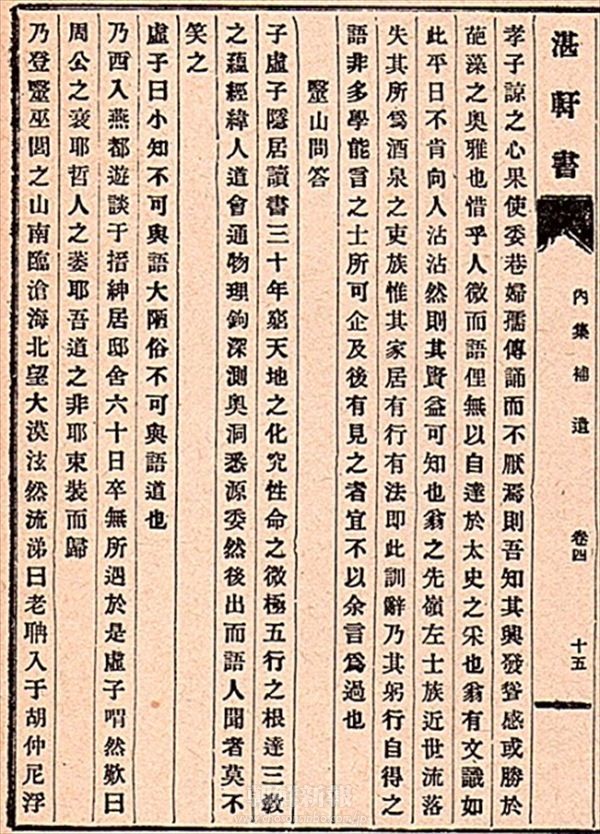 湛軒書 內集補遺 卷四 十五
孝子諒之心果使委巷婦孺傳誦而不厭焉則吾知其興發聳感或勝於
葩藻之奧雅也惜乎人微而語俚無以自達於太史之采也翁有文識如
此平日不肯向人沾沾然則其賢益可知也翁之先嶺左士族近世流落
失其所爲酒泉之吏族惟其家居有行有法即此訓辭乃其躬行自得之
語非多學能言之士所可企及後有見之者宜不以余言爲過也
毉山問答
子虛子隱居讀書三十年窮天地之化究性命之微極五行之根達三敎
之蘊經緯人道會通物理鉤深測奧洞悉源委然後出而語人聞者莫不
笑之
虛子曰小知不可與語大陋俗不可與語道也
乃西入燕都遊談于搢紳居邸舍六十日卒無所遇於是虛子喟然歎曰
周公之衰耶哲人之萎耶吾道之非耶束裝而歸
乃登毉巫閭之山南臨滄海北望大漠泫然流涕曰老聃入于胡仲尼浮